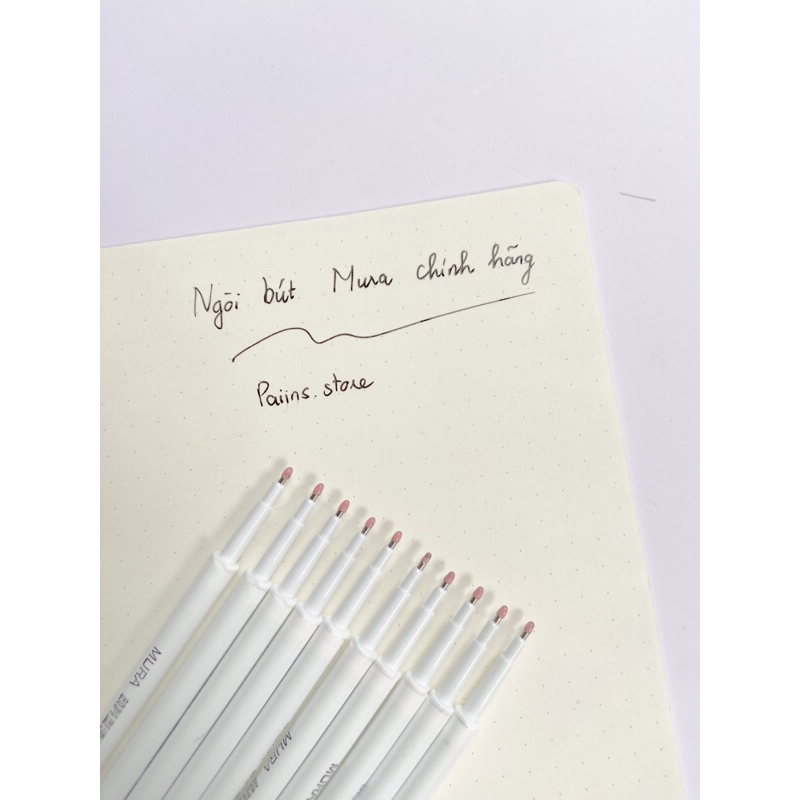 Ngòi bút Mura chính hãng
Paiins.store
MURA
MURA
MURA